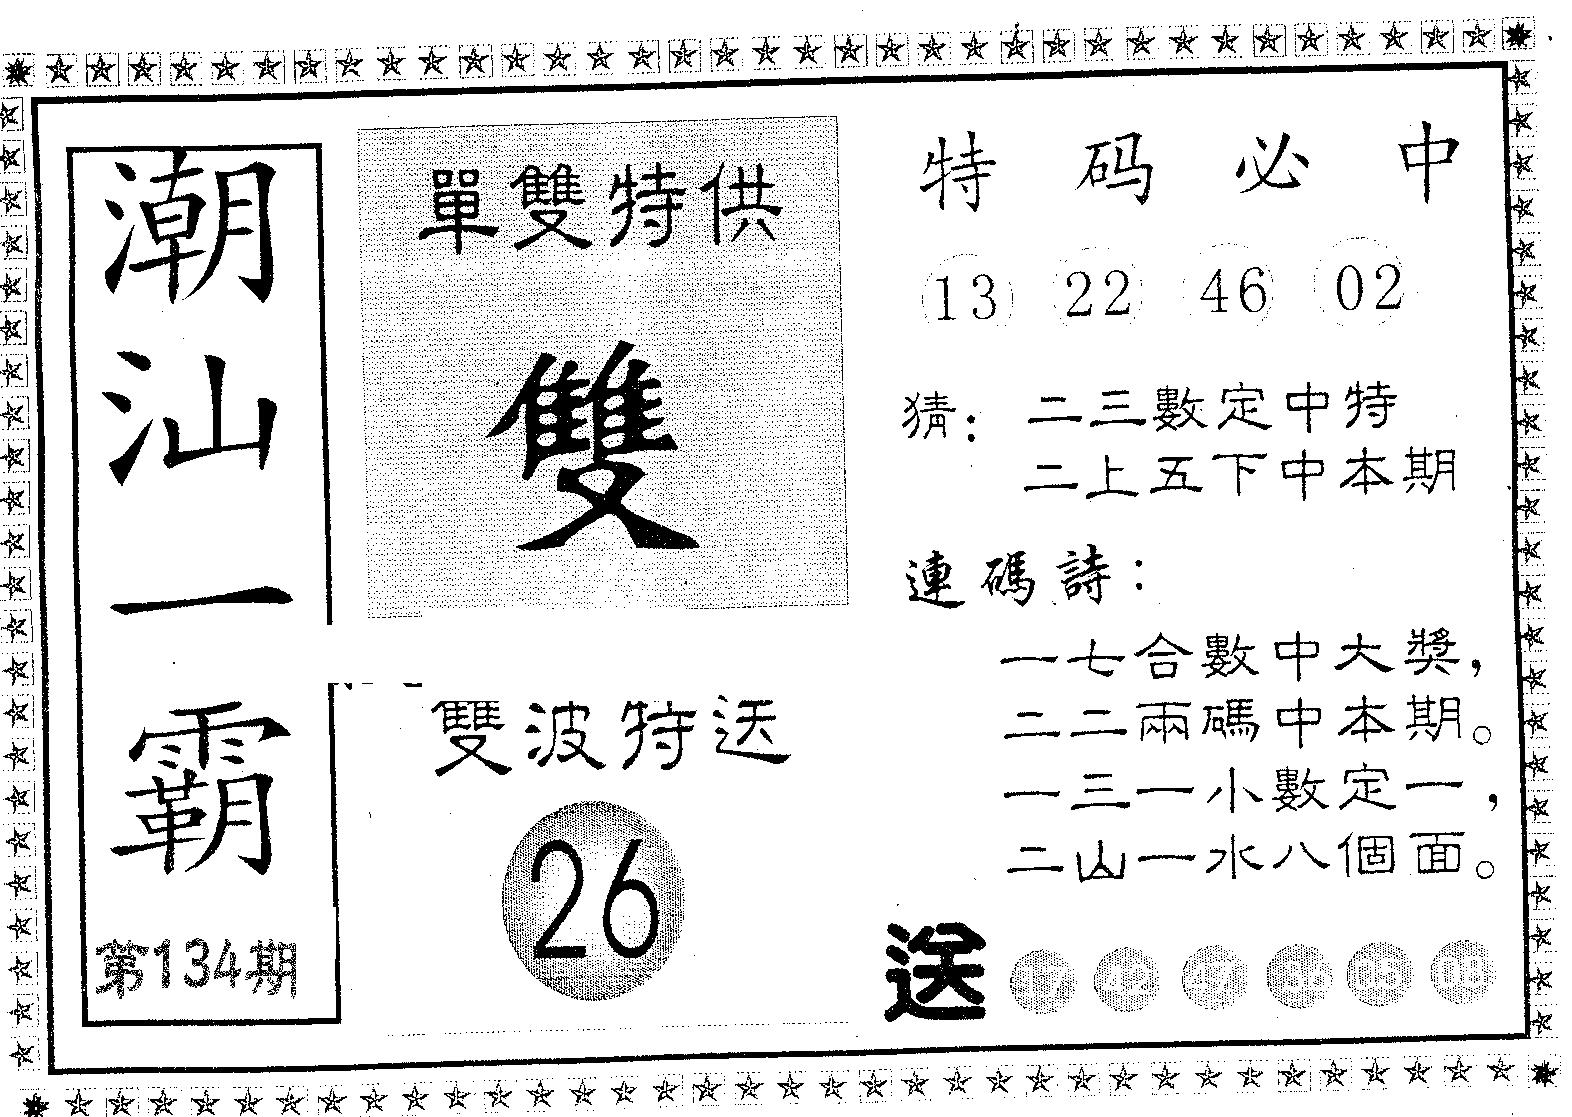 潮汕一霸
第134期
單雙特供
雙
雙波特送
26
特码必中
13 22 46 02
猜：二三數定中特
二上五下中本期
連碼詩：
一七合數中大獎，
二二兩碼中本期。
一三一小數定一，
二山一水八個面。
送